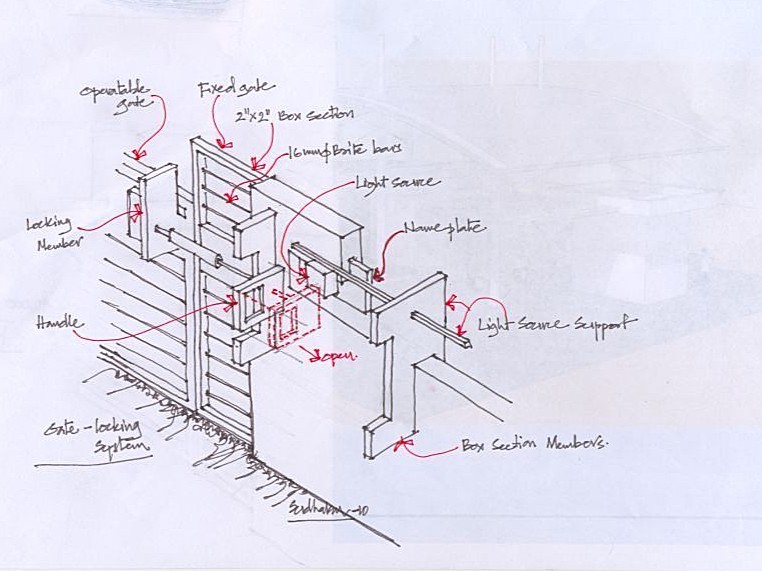 Operatable
gate
Fixed gate
2"x2" Box section
16mmϕ Brite bars
Light source
Locking
Member
Name plate
Handle
Light Source Support
open.
Gate - locking
System
Box Section Members.